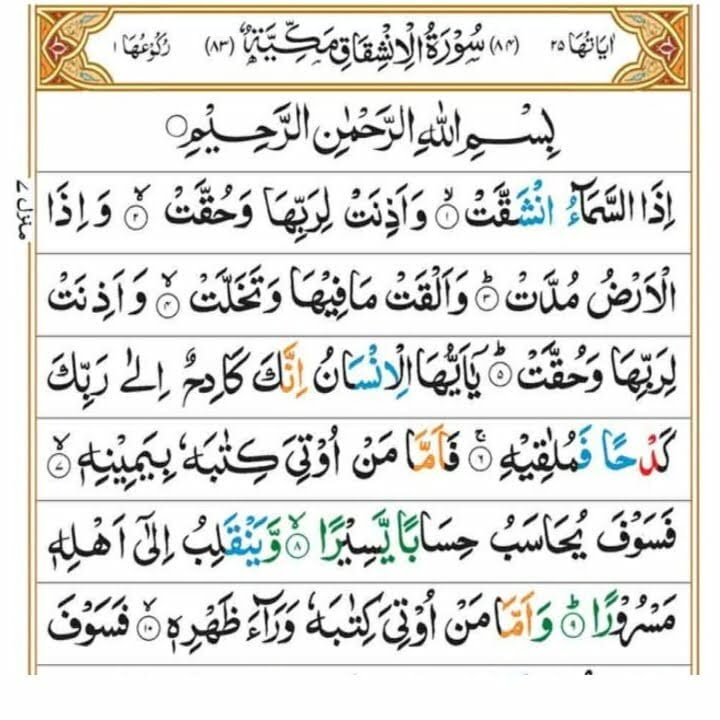 اٰيَاتُهَا ٢٥ (٨٤) سُوْرَةُ الْاِنْشِقَاقِ مَكِّيَّةٌ (٨٣) رُكُوْعُهَا ١
بِسْمِ اللّٰهِ الرَّحْمٰنِ الرَّحِيْمِ ۝
اِذَا السَّمَآءُ انْشَقَّتْ ۙ‏﴿۱﴾ وَاَذِنَتْ لِرَبِّهَا وَحُقَّتْ ۙ‏﴿۲﴾ وَاِذَا
الْاَرْضُ مُدَّتْ ؕ‏﴿۳﴾ وَاَلْقَتْ مَا فِيْهَا وَتَخَلَّتْ ۙ‏﴿۴﴾ وَاَذِنَتْ
لِرَبِّهَا وَحُقَّتْ ؕ‏﴿۵﴾ يٰۤاَيُّهَا الْاِنْسَانُ اِنَّكَ كَادِحٌ اِلٰى رَبِّكَ
كَدْحًا فَمُلٰقِيْهِ ۚ‏﴿۶﴾ فَاَمَّا مَنْ اُوْتِيَ كِتٰبَهٗ بِيَمِيْنِهٖ ۙ‏﴿۷﴾
فَسَوْفَ يُحَاسَبُ حِسَابًا يَّسِيْرًا ۙ‏﴿۸﴾ وَّيَنْقَلِبُ اِلٰٓى اَهْلِهٖ
مَسْرُوْرًا ؕ‏﴿۹﴾ وَاَمَّا مَنْ اُوْتِيَ كِتٰبَهٗ وَرَآءَ ظَهْرِهٖ ۙ‏﴿۱۰﴾ فَسَوْفَ
منزل ٧